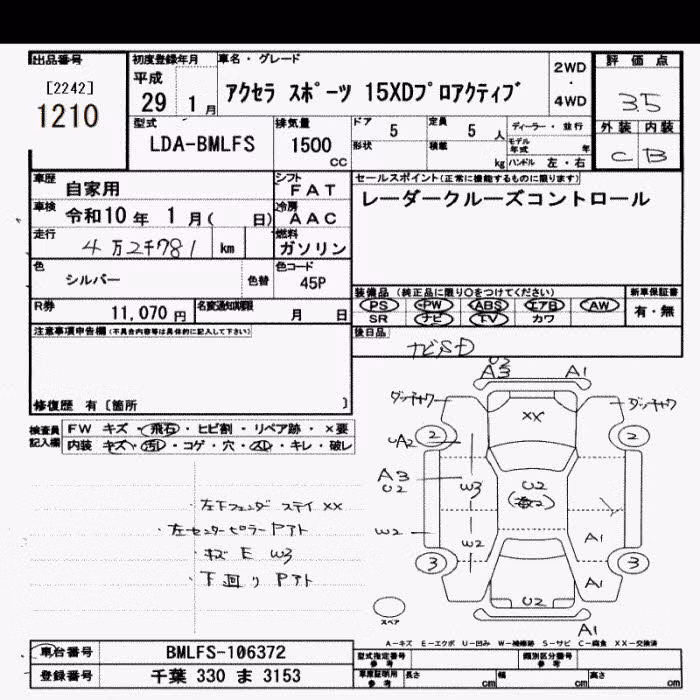 出品番号
[2242]
1210
初度登録年月
平成
29 1月
車名・グレード
アクセラ スポーツ 15XDプロアクティブ
2WD
・
4WD
評価点
3.5
外装 内装
C B
型式
LDA-BMLFS
排気量
1500
cc
ドア 5
形状
定員 5 人
積載 kg
ディーラー・並行
モデル年式 年
ハンドル 左・右
車歴
自家用
車検
令和10年 1月( 日)
走行
4万2千781 km
色
シルバー
色替
シフト
FAT
冷房
AAC
燃料
ガソリン
色コード
45P
R券
11,070円
名変通知期限
月 日
セールスポイント(正常に機能するものに限ります)
レーダークルーズコントロール
装備品(純正品に限り○をつけてください)
PS PW ABS エアB AW
SR ナビ TV カワ
新車保証書
有・無
後日品
ナビSD
注意事項申告欄(不具合内容等は具体的に記入して下さい)
修復歴 有[箇所 ]
検査員
記入欄
FW キズ・飛石・ヒビ割・リペア跡・×要
内装 キズ・汚レ・コゲ・穴・スレ・キレ・破レ
・左下フェンダ ステイ XX
・左センターピラー Pアト
・キズ E W3
・下回り Pアト
U2
A3 A1
ダッチャク ダッチャク
XX
2 2
UA2
A3
U2
W3
U2
W2
W2
A1
3 3
A1
U2
A1
スペア
A-キズ E-エクボ U-凹み W-補修跡 S-サビ C-腐食 XX-交換済
車台番号
BMLFS-106372
登録番号
千葉 330 ま 3153
型式指定番号
参考
類別区分番号
参考
車庫証明用
参考
長さ cm
幅 cm
高さ cm